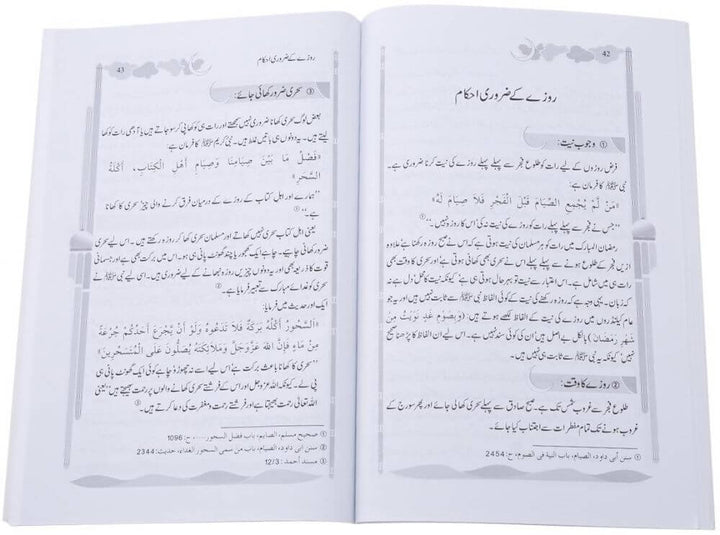 42
روزے کے ضروری احکام
① وجوب نیت:
فرض روزوں کے لیے رات کو طلوع فجر سے پہلے پہلے روزے کی نیت کرنا ضروری ہے۔
نبی ﷺ کا فرمان ہے:
«مَنْ لَّمْ يُجْمِعِ الصِّيَامَ قَبْلَ الْفَجْرِ فَلَا صِيَامَ لَهُ»
”جس نے فجر سے پہلے پہلے رات کو روزے کی نیت نہ کی اس کا روزہ نہیں۔“①
رمضان المبارک میں رات کو ہر مسلمان کی نیت ہوتی ہے کہ اس نے صبح روزہ رکھنا ہے علاوہ
ازیں فجر کے طلوع ہونے سے پہلے پہلے اس نے سحری بھی کھانی ہوتی ہے اور سحری کا وقت بھی
رات ہی میں شامل ہے۔ اس اعتبار سے نیت تو بہر حال ہوتی ہی ہے کیونکہ نیت کا محل دل ہے نہ
کہ زبان۔ یہی وجہ ہے کہ روزہ رکھنے کی نیت کے کوئی الفاظ نبی ﷺ سے ثابت نہیں ہیں اور یہ جو
عام کیلنڈروں میں روزے کی نیت کے الفاظ لکھے ہوتے ہیں: (وَبِصَوْمِ غَدٍ نَوَيْتُ مِنْ
شَهْرِ رَمَضَانَ) بالکل بے اصل ہیں‘ ان کی کوئی سند نہیں ہے۔ اس لیے ان الفاظ کا پڑھنا صحیح
نہیں‘ کیونکہ یہ نبی ﷺ سے ثابت ہی نہیں ہیں۔
② روزے کا وقت:
طلوع فجر سے غروب شمس تک ہے۔ صبح صادق سے پہلے سحری کھالی جائے اور پھر سورج کے
غروب ہونے تک تمام مفطرات سے اجتناب کیا جائے۔
① سنن أبی داود، الصیام، باب النیة فی الصوم، ح: 2454
43
روزے کے ضروری احکام
③ سحری ضرور کھائی جائے:
بعض لوگ سحری کھانا ضروری نہیں سمجھتے اور رات ہی کو کھا پی کر سو جاتے ہیں یا آدھی رات کو کھا
لیتے ہیں۔ یہ دونوں ہی باتیں غلط ہیں۔ نبی کریم ﷺ کا فرمان ہے:
«فَصْلُ مَا بَيْنَ صِيَامِنَا وَصِيَامِ أَهْلِ الْكِتَابِ، أَكْلَةُ
السَّحَرِ»
”ہمارے اور اہل کتاب کے روزے کے درمیان فرق کرنے والی چیز سحری کا کھانا
ہے۔“①
یعنی اہل کتاب سحری نہیں کھاتے اور مسلمان سحری کھا کر روزہ رکھتے ہیں۔ اس لیے سحری
ضرور کھانی چاہیے۔ چاہے ایک کھجور یا چند گھونٹ پانی ہی ہو۔ اس میں برکت بھی ہے اور جسمانی
قوت کا ذریعہ بھی اور یہ دونوں چیزیں روزہ نبھانے کے لیے ضروری ہیں۔ اسی لیے نبی ﷺ نے
سحری کو غدائے مبارک سے تعبیر فرمایا ہے۔②
ایک اور حدیث میں فرمایا:
«اَلسَّحُورُ أَكْلُهُ بَرَكَةٌ فَلَا تَدَعُوهُ وَلَوْ أَنْ يَجْرَعَ أَحَدُكُمْ جُرْعَةً
مِنْ مَاءٍ فَإِنَّ اللهَ عَزَّوَجَلَّ وَمَلَائِكَتَهُ يُصَلُّونَ عَلَى الْمُتَسَحِّرِينَ»
”سحری کا کھانا باعث برکت ہے‘ اس لیے اسے نہ چھوڑو چاہے کوئی ایک گھونٹ پانی ہی
پی لے۔ کیونکہ اللہ عزوجل اور اس کے فرشتے سحری کھانے والوں پر رحمت بھیجتے ہیں“ یعنی
اللہ تعالیٰ رحمت بھیجتا ہے اور فرشتے رحمت و مغفرت کی دعا کرتے ہیں۔③
① صحیح مسلم، الصیام، باب فضل السحور....، ح: 1096
② سنن أبی داود، الصیام، باب من سمی السحور الغداء، حدیث: 2344
③ مسند أحمد: 12/3